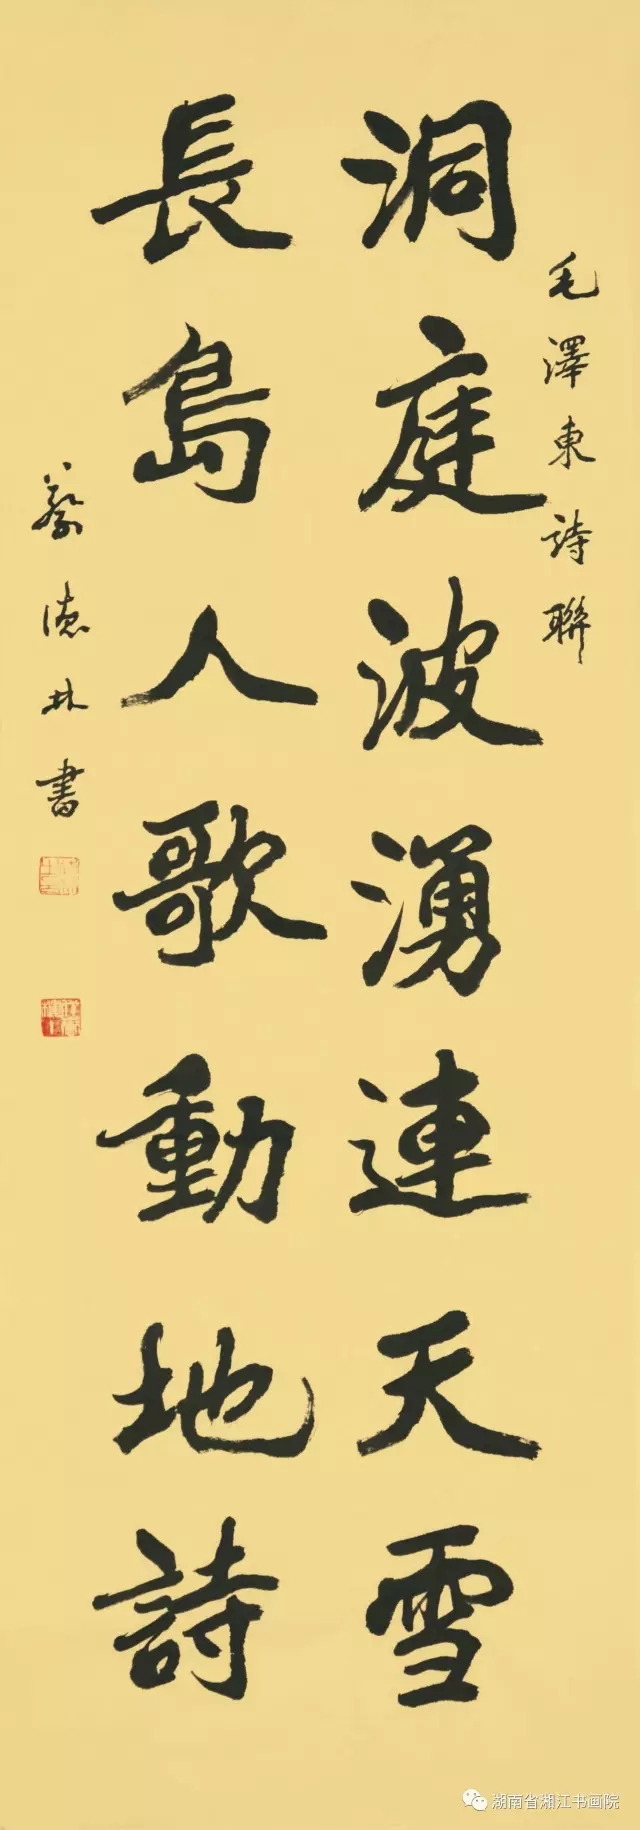 毛澤東詩聯
洞庭波湧連天雪
長島人歌動地詩
蔡德林書
湖南省湘江书画院